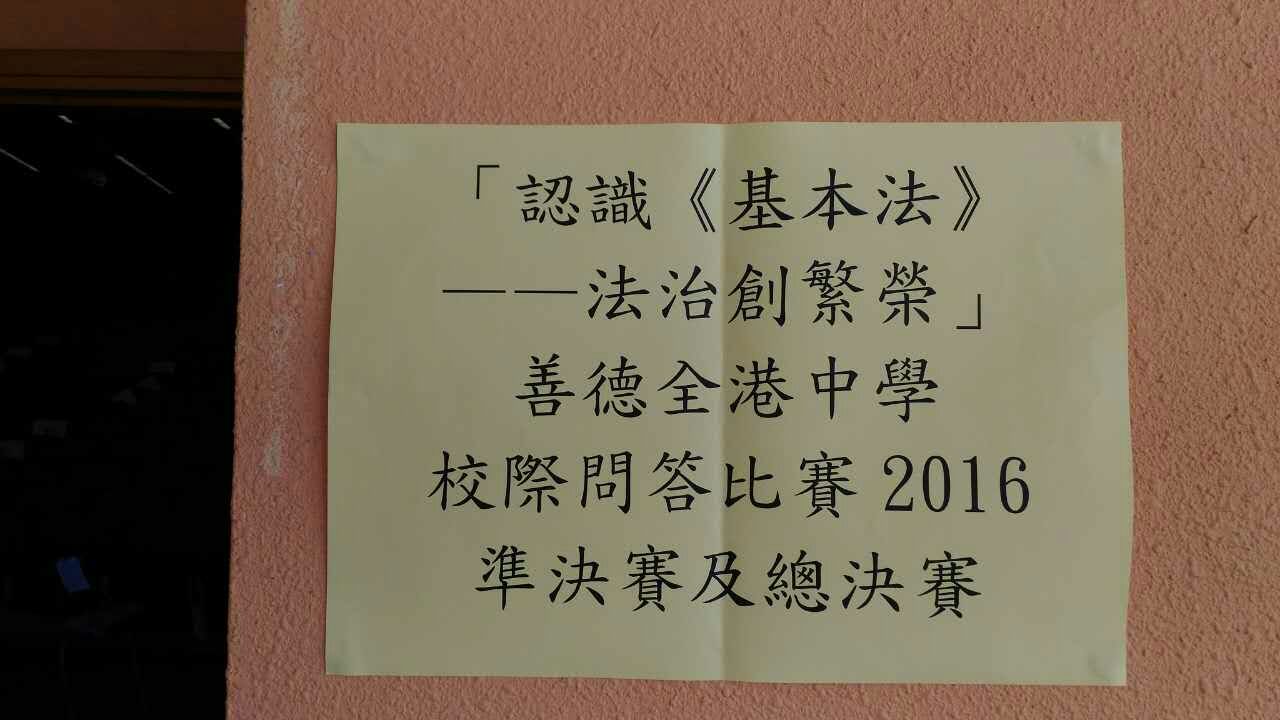 「認識《基本法》
——法治創繁榮」
善德全港中學
校際問答比賽2016
準決賽及總決賽